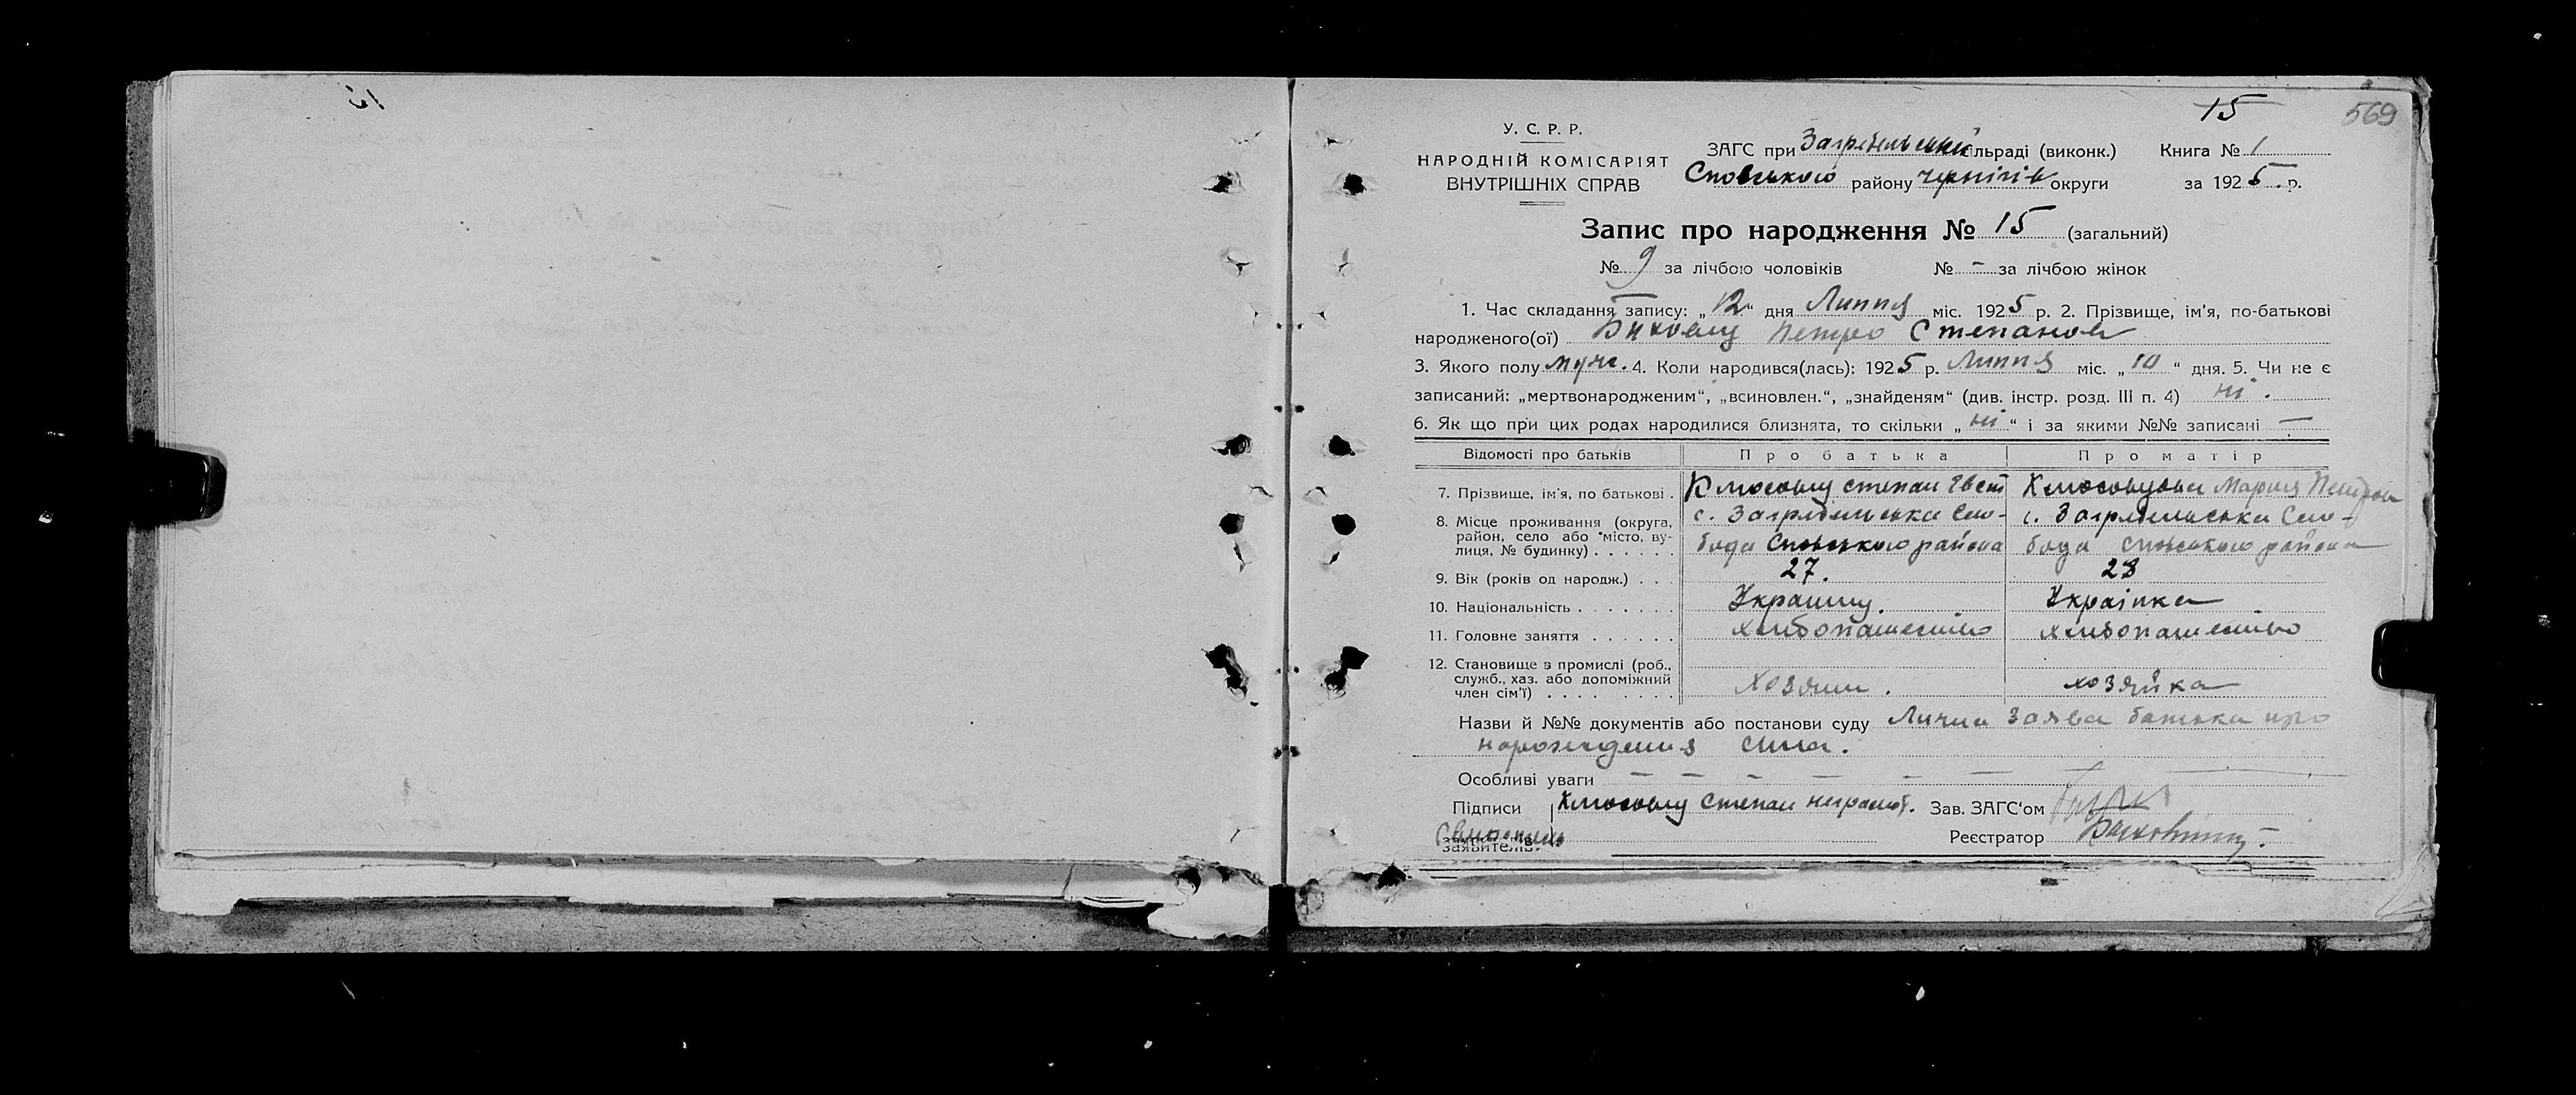 15
569
У. С. Р. Р.
НАРОДНІЙ КОМІСАРІЯТ
ВНУТРІШНІХ СПРАВ
ЗАГС при Загребельській сільраді (виконк.) Книга № 1
Сновського району Чернігів округи за 1925 р.
Запис про народження № 15 (загальний)
№ 9 за лічбою чоловіків № — за лічбою жінок
1. Час складання запису: „12“ дня Липця міс. 1925 р. 2. Прізвище, ім'я, по-батькові
народженого(ої) Петро Степанов
3. Якого полу муж. 4. Коли народився(лась): 1925 р. Липця міс. „10“ дня. 5. Чи не є
записаний: „мертвонародженим“, „всиновлен.“, „знайденям“ (див. інстр. розд. III п. 4) ні.
6. Як що при цих родах народилися близнята, то скільки „ні“ і за якими №№ записані —
Відомості про батьків Про батька Про матір
7. Прізвище, ім'я, по батькові . Степан Евст Мария Петров
8. Місце проживання (округа, район, село або місто, вулиця, № будинку) . . . . . .
с. Загребельська Сло-
бода Сновського района
с. Загребельська Сло-
бода Сновського района
9. Вік (років од народж.) . . . 27. 28
10. Національність . . . . . . . Украинц. Украінка
11. Головне заняття . . . . . . хлибопашество хлибопашество
12. Становище в промислі (роб., служб., хаз. або допоміжний член сім'ї) . . . . . . . . .
Хозяин. хозяйка
Назви й №№ документів або постанови суду Лична заява батька про
нарождения сина.
Особливі уваги — — — — — —
Підписи Степан неграмот. Зав. ЗАГС'ом
заявителів Реєстратор